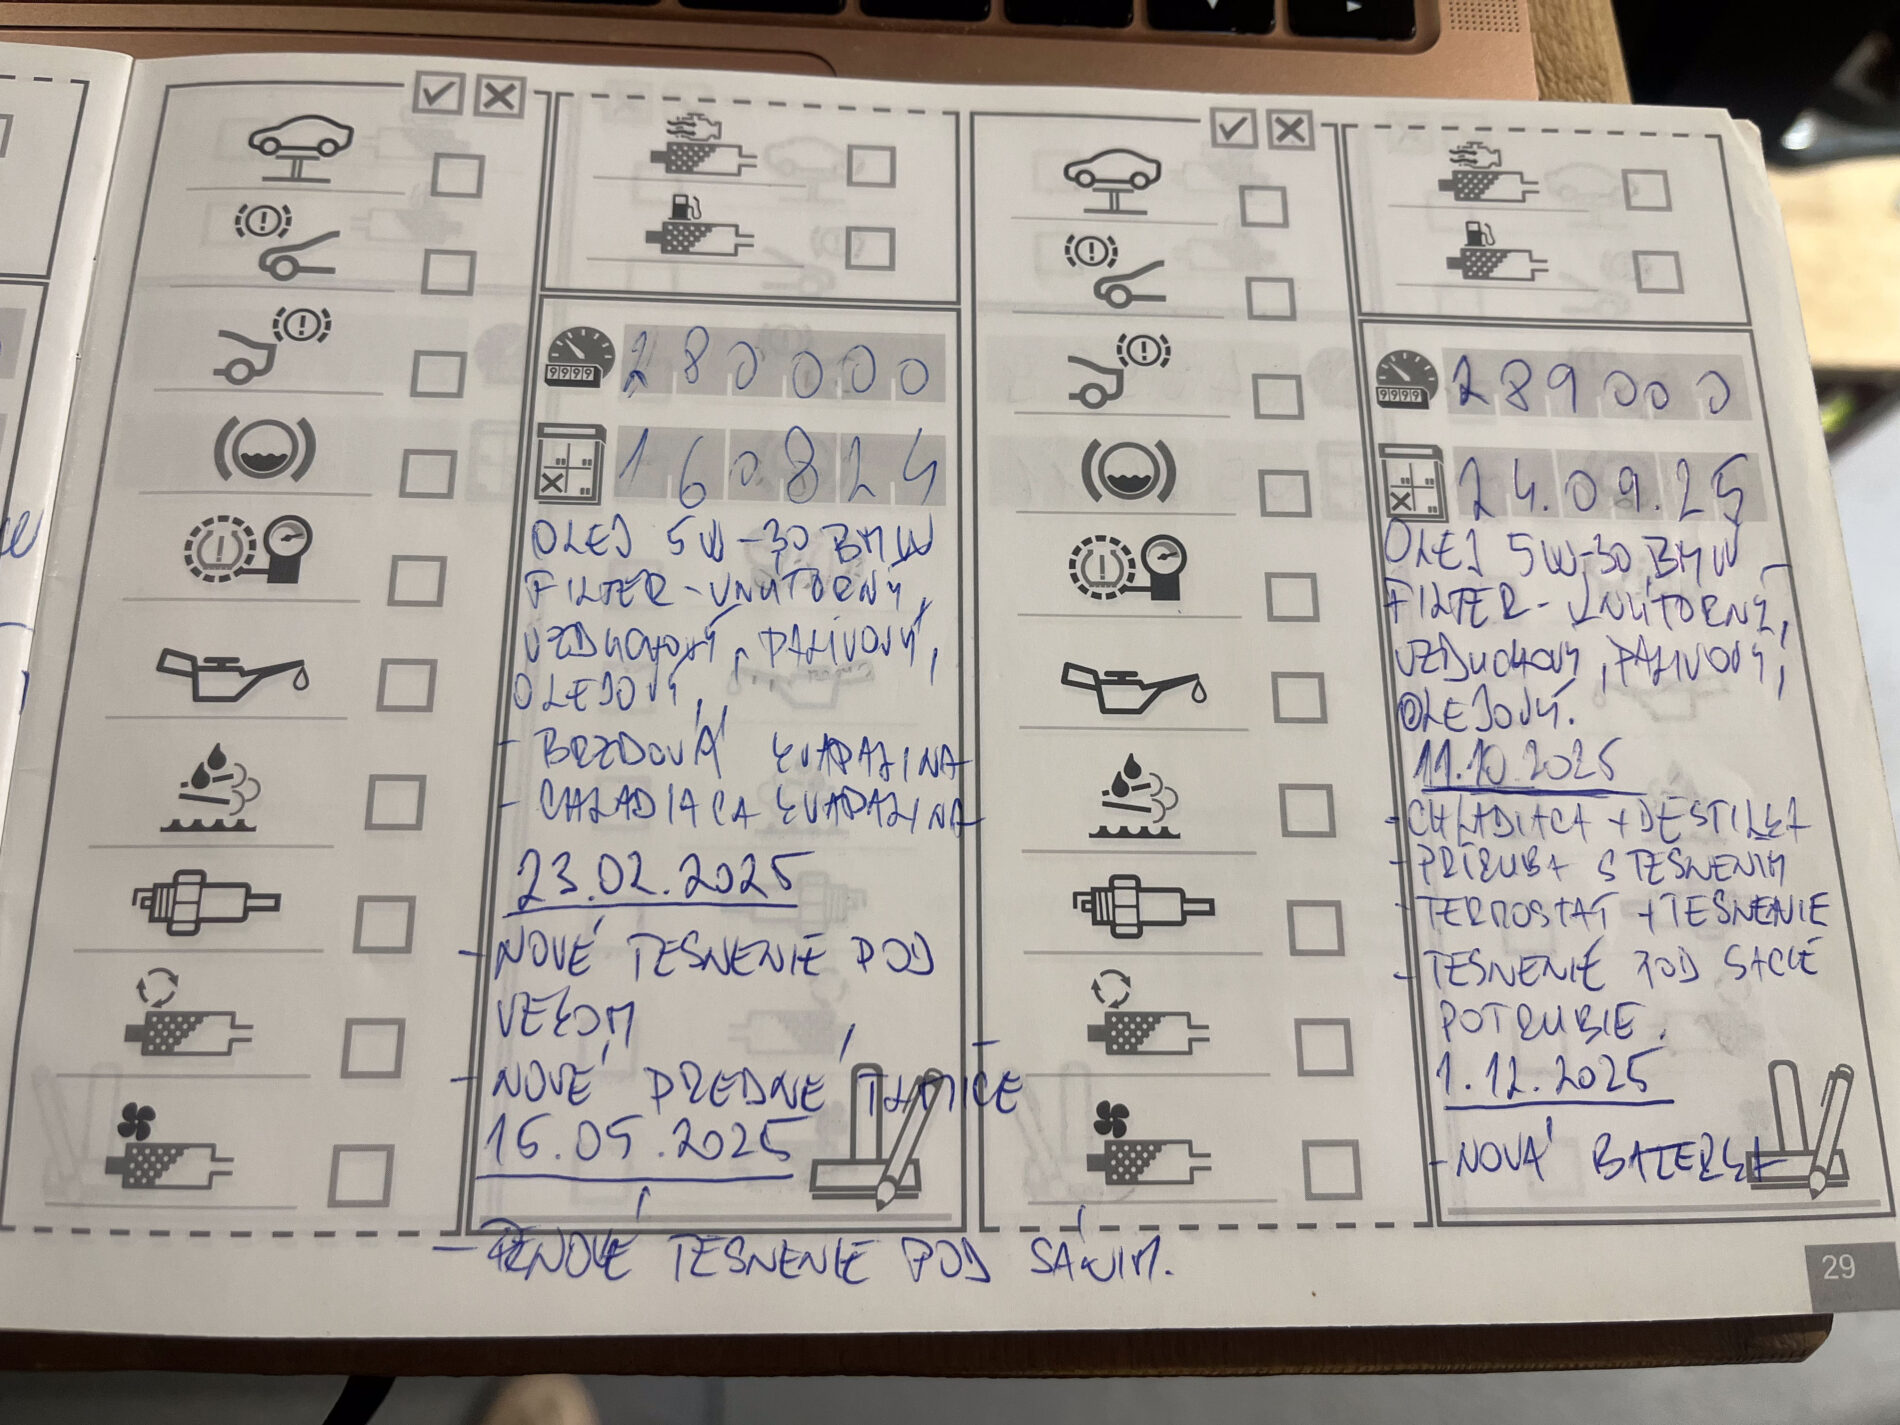 9999
280000
160824
OLEJ 5W-30 BMW
FILTER - VNÚTORNÝ,
VZDUCHOVÝ, PALIVOVÝ,
OLEJOVÝ,
- BRZDOVÁ KVAPALINA
- CHLADIACA KVAPALINA
23.02.2025
- NOVÉ TESNENIE POD
VEKOM
- NOVÉ PREDNÉ TLMIČE
16.05.2025
NOVÉ TESNENIE POD SÁNIM.
9999
289000
24.09.25
OLEJ 5W-30 BMW
FILTER - VNÚTORNÝ,
VZDUCHOVÝ, PALIVOVÝ,
OLEJOVÝ.
11.10.2025
- CHLADIACA + DESTILKA
- PRÍRUBA S TESNENIM
- TERMOSTAT + TESNENIE
- TESNENIE POD SACIE
POTRUBIE.
1.12.2025
- NOVÁ BATERKA
29